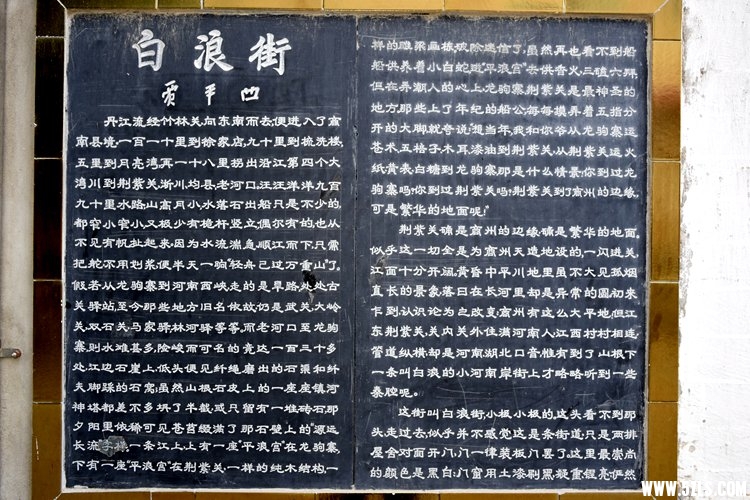 白浪街
贾平凹
丹江流经竹林关,向东南而去,便进入了商
南县境。一百一十里到徐家店,九十里到梳洗楼,
五里到月亮湾,再一十八里拐出沿江第四个大
湾川到荆紫关,淅川、均县、老河口。汪汪洋洋九百
九十里水路,山高月小,水落石出。船只是不少的,
都窄小窄小,又极少有桅杆竖立,偶尔有的,也从
不见有帆扯起来。因为水流湍急,顺江而下,只需
把舵,不用划桨,便半天一晌,"轻舟已过万重山"了。
假若从龙驹寨到河南西峡走的是旱路,处处古
关驿站,至今那些地方旧名依故,仍是武关,大岭
关,双石关,马家驿,林河驿等等。而老河口至龙驹
寨,则水滩甚多,险峻而可名的竟达一百三十多
处。江边石崖上,低头便见纤绳磨出的石渠和纤
夫脚踩的石窝;虽然山根石皮上的一座座镇河
神塔都差不多坍了半截,或只留有一堆砖石,那
夕阳里依稀可见苍苔缀满了那石壁上的"源远
长流"字样。一条江上,上有一座"平浪宫"在龙驹寨,
下有一座"平浪宫"在荆紫关,一样的纯木结构,一
样的雕梁画栋。破除迷信了,虽然再也看不到船
船供养着小白蛇,进"平浪宫"去供香火,三磕六拜,
但在弄潮人的心上,龙驹寨、荆紫关是最神圣的
地方。那些上了年纪的船公,每每摸弄着五指分
开的大脚,就夸说:"想当年,我和你爷从龙驹寨运
苍术、五格子、木耳、漆油到荆紫关,从荆紫关运火
纸、黄表、白糖到龙驹寨,那是什么情景!你到过龙
驹寨吗?你到过荆紫关吗?荆紫关到了商州的边缘,
可是繁华的地面呢!"
荆紫关确是商州的边缘,确是繁华的地面。
似乎这一切全是为商州天造地设的,一闪进关,
江面十分开阔,黄昏中平川地里虽不大见孤烟
直长的景象,落日在长河里却是异常的圆。初来
乍到,认识论为之改变:商州有这么大平地!但江
东荆紫关,关内关外住满河南人,江西村村相连,
管道纵横,却是河南、湖北口音,惟有到了山根下
一条叫白浪的小河南岸街上,才略略听到一些
秦腔呢。
这街叫白浪街,小极小极的。这头看不到那
头,走过去,似乎并不感觉这是条街道,只是两排
屋舍对面开门,门一律装板门罢了。这里最崇尚
的颜色是黑白:门窗用土漆刷黑,凝重、锃亮,俨然
WWW.51LS.COM